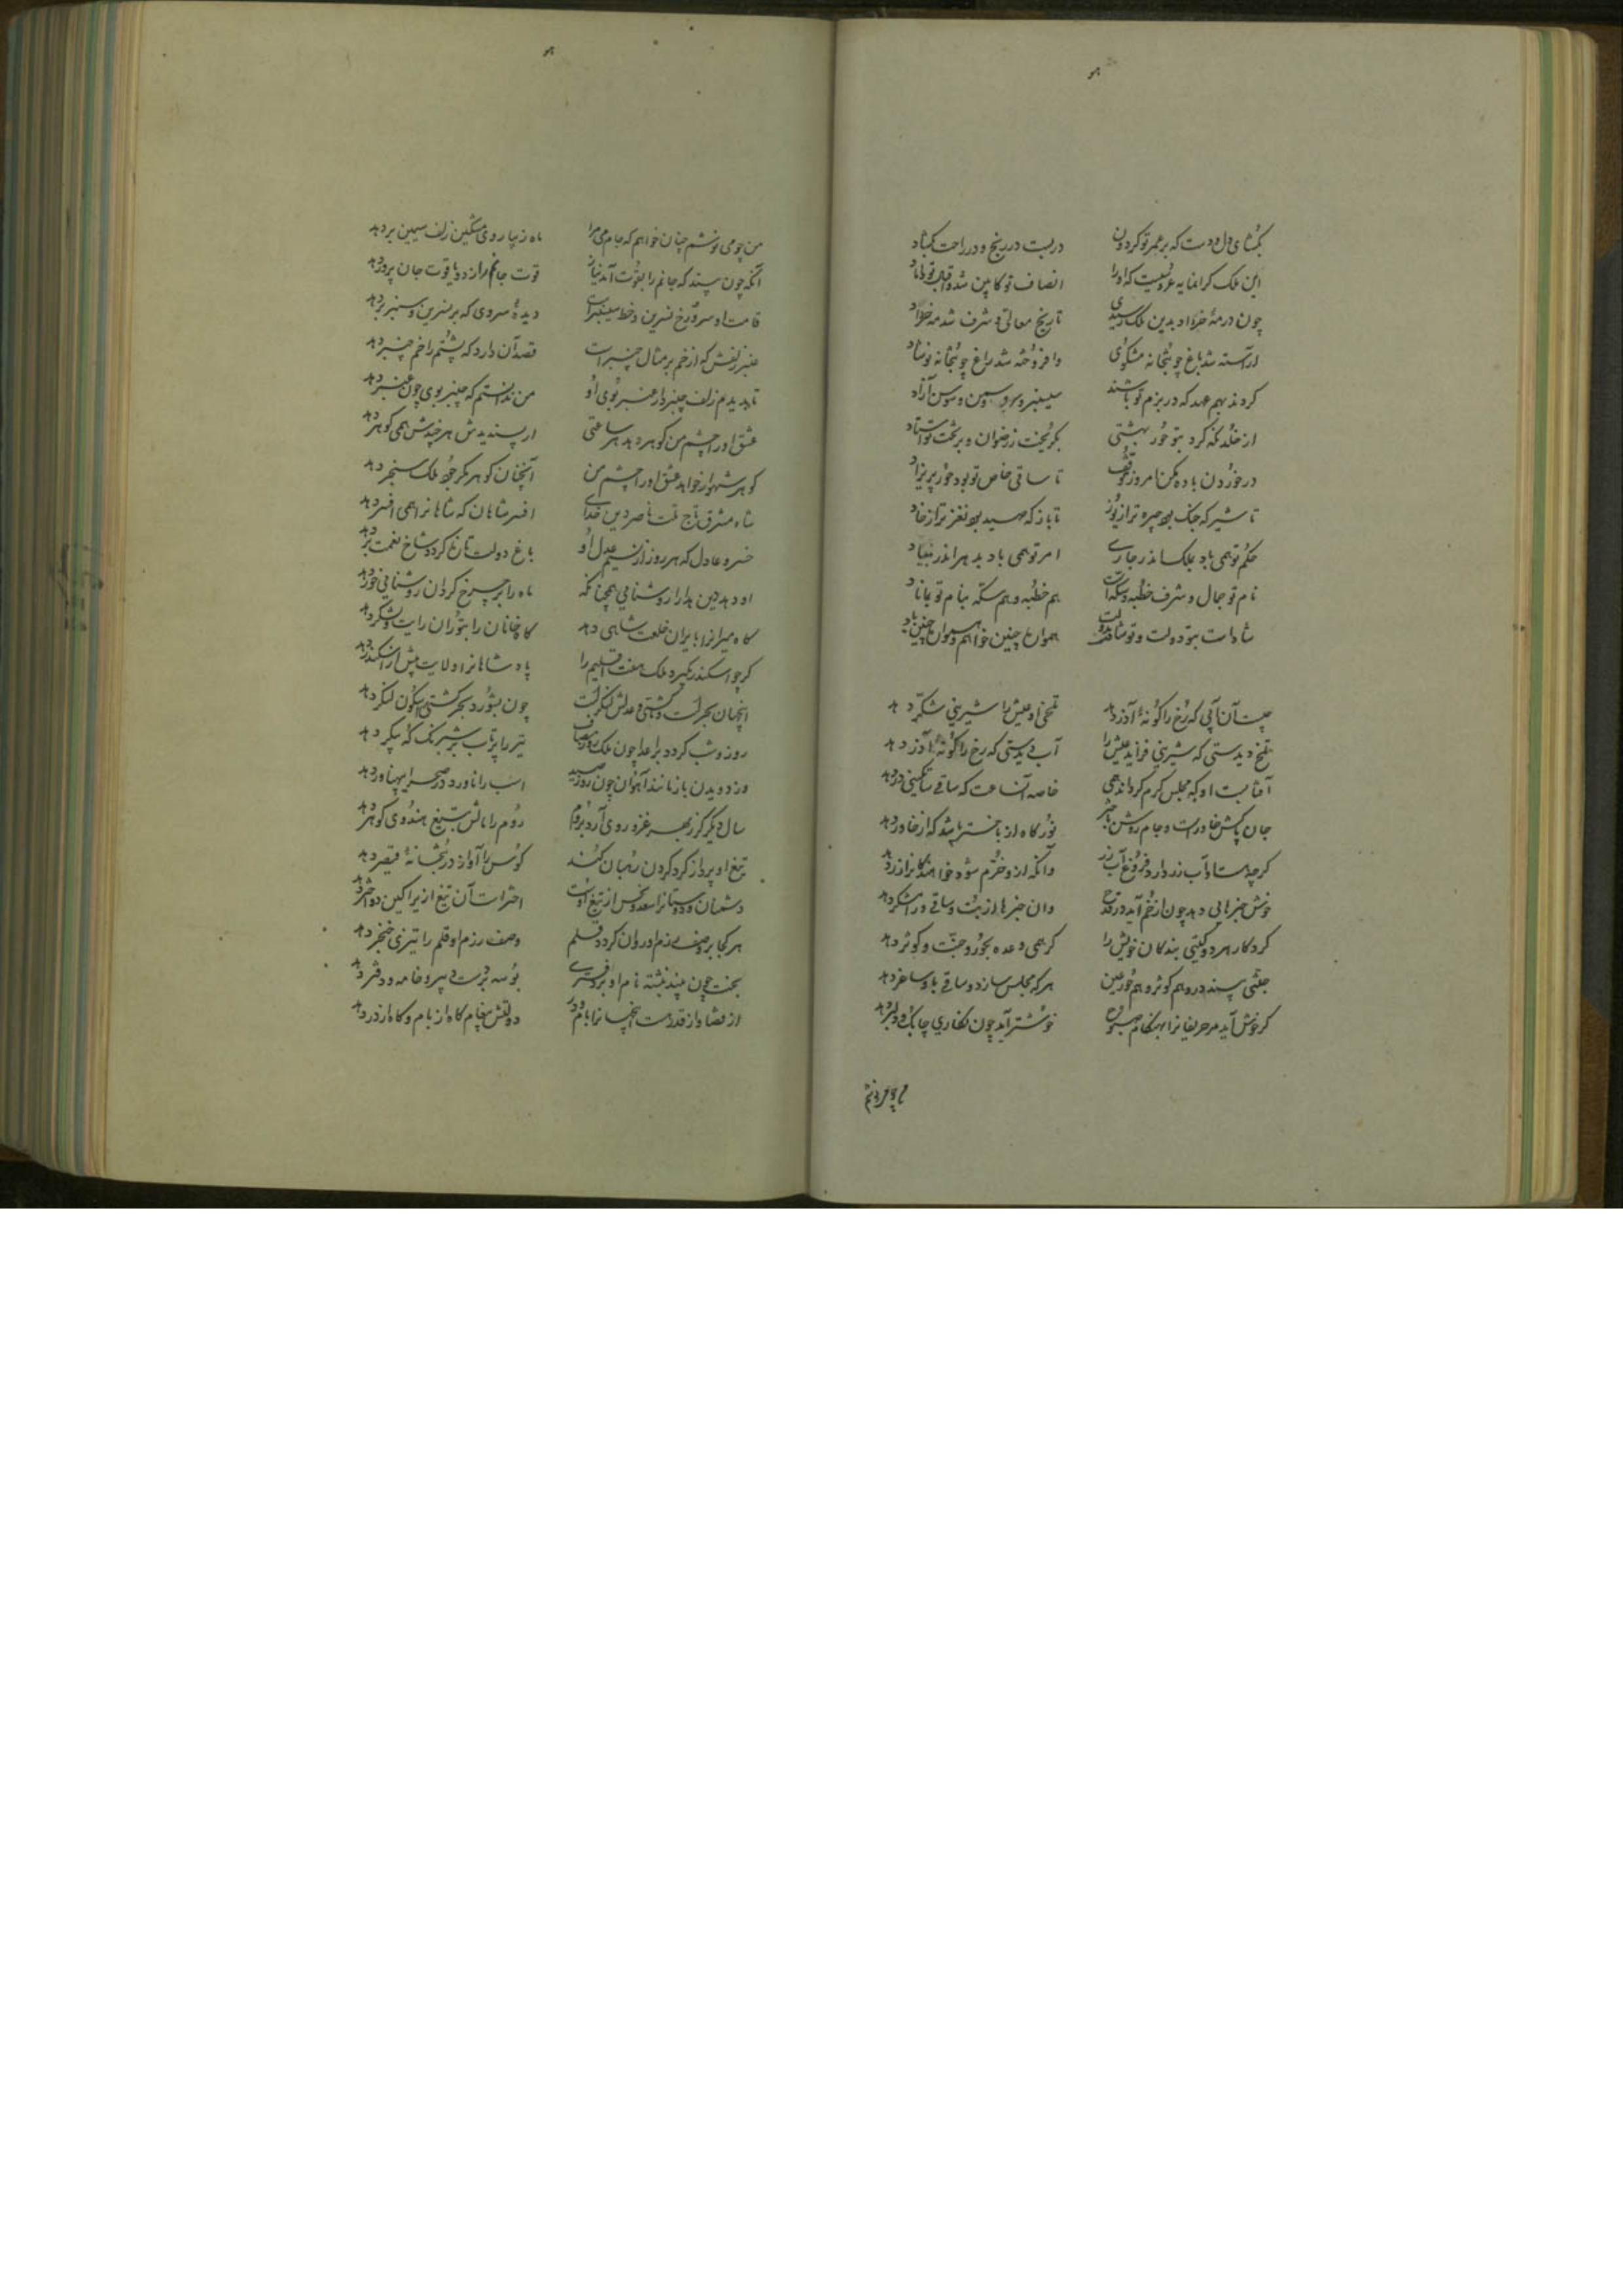 هو
بگشای دل و دست که بر عمر تو گردون در بست در رنج و در راحت بگشاد
این ملک گرانمایه عروسیست که او را انصاف تو کابین شد و اقبال تو داماد
چون در مه خرداد بدین ملک رسیدی تاریخ معالی و شرف شد مه خرداد
آراسته شد باغ چو بتخانه مشکوی وافروخته شد راغ چو بتخانه نوشاد
کردند بهم عهد که در بزم تو باشند سیسنبر و سوسن و سوسن آزاد
از خلد نگه کرد بتو حور بهشتی بگریخت ز رضوان و بر تخت تو استاد
در خوردن باده مکن امروز توقف تا ساقی خاص تو بود حور پریزاد
تا شیر که جنگ بود چیره‌تر از یوز تا باز که صید بود نغزتر از خاد
حکم تو همی باد بملک اندر جاری امر تو همی باد بدهر اندر بنیاد
نام تو جمال و شرف خطبه و سکه است هم خطبه و هم سکه بنام تو بماناد
شادست بتو دولت و تو شاد بدولت همواره چنین خواهم و همواره چنین باد
چیست آن آبی که رخ را گونه آذر دهد تلخی او عیش را شیرینی شکر دهد
تلخ دیدستی که شیرینی فزاید عیش را آب دیدستی که رخ را گونه آذر دهد
آفتابست او که مجلس گرم گرداند همی خاصه آن ساعت که ساقی ساتگینی در دهد
جان پاکش خاورست و جام روشن باختر نور گاه از باختر باشد که از خاور دهد
گرچه هست او آب زر دارد فروغ آب زر وانکه ازو خرم شود خواهندگانرا زر دهد
خوش خبرهایی دهد چون از خم آید در قدح وان خبرها از بت و ساقی و رامشگر دهد
کردگار هر دو گیتی بندگان خویش را گر همی وعده بحور و جنت و کوثر دهد
جنتی بیند درو هم کوثر و هم حور عین هر که مجلس سازد و ساقی باو ساغر دهد
گر خوش آید مر حریفانرا بهنگام صبوح خوشتر آید چون نگاری چابک و دلبر دهد
هو
من چو می نوشم چنان خواهم که جام می مرا ماه زیبا روی مشکین زلف سیمین بر دهد
آنکه چون بیند که جانم را بقوت آمد نیاز قوت جانم را ز دو یاقوت جان پرور دهد
قامت او سرو و رخ نسرین و خط سیسنبرست دیده سروی که بر نسرین و سیسنبر دهد
عنبر زلفش که از خم بر مثال چنبر است قصد آن دارد که پشتم را خم چنبر دهد
تا ندیدم زلف چنبروار عنبر بوی او من ندانستم که چنبر بوی چون عنبر دهد
عشق او را چشم من گوهر دهد هر ساعتی ار پسندیدش هر چندش همی گوهر دهد
گوهر شهوار خواهد عشق او را چشم من آنچنان گوهر مگر جود ملک سنجر دهد
شاه مشرق تاج ملت ناصر دین خدای افسر شاهان که شاهانرا همی افسر دهد
خسرو عادل که هر روز از نسیم عدل او باغ دولت تازه گردد شاخ نعمت بر دهد
او دهد دین هدی را روشنایی همچنانکه ماه را بر چرخ گردان روشنایی خور دهد
گاه میرانرا بایران خلعت شاهی دهد گاه خانان را بتوران رایت و لشکر دهد
گر چو اسکندر بگیرد ملک هفت اقلیم را پادشاهانرا ولایت بیش از اسکندر دهد
این جهان بحرست و کشتی و عدلش لنگرست چون بشورد بحر کشتی را سکون لنگر دهد
روز و شب گردد بر اعدا چون ملک روز مصاف تیر را پرتاب بر شبرنگ که پیکر دهد
وز دویدن باز مانند آهوان چون روز صید اسب را ناورد در صحرای پهناور دهد
سال دیگر گر ز بهر غزو روی آرد بروم روم را مالش بتیغ هندوی گوهر دهد
تیغ او پرواز گرد گردن رهبان کند کوس را آواز در بتخانه قیصر دهد
دشمنان و دوستانرا سعد و نحس از تیغ اوست اخترست آن تیغ ازیرا کین دو اختر دهد
هر کجا بر وصف رزم او روان گردد قلم وصف رزم او قلم را تیزی خنجر دهد
بخت چون بیند نبشته نام او بر دفتری بوسه بر دست دبیر و خامه و دفتر دهد
از قضا و از قدر هست آنچه ما را بام و در دولتش پیغام گاه از بام و گاه از در دهد